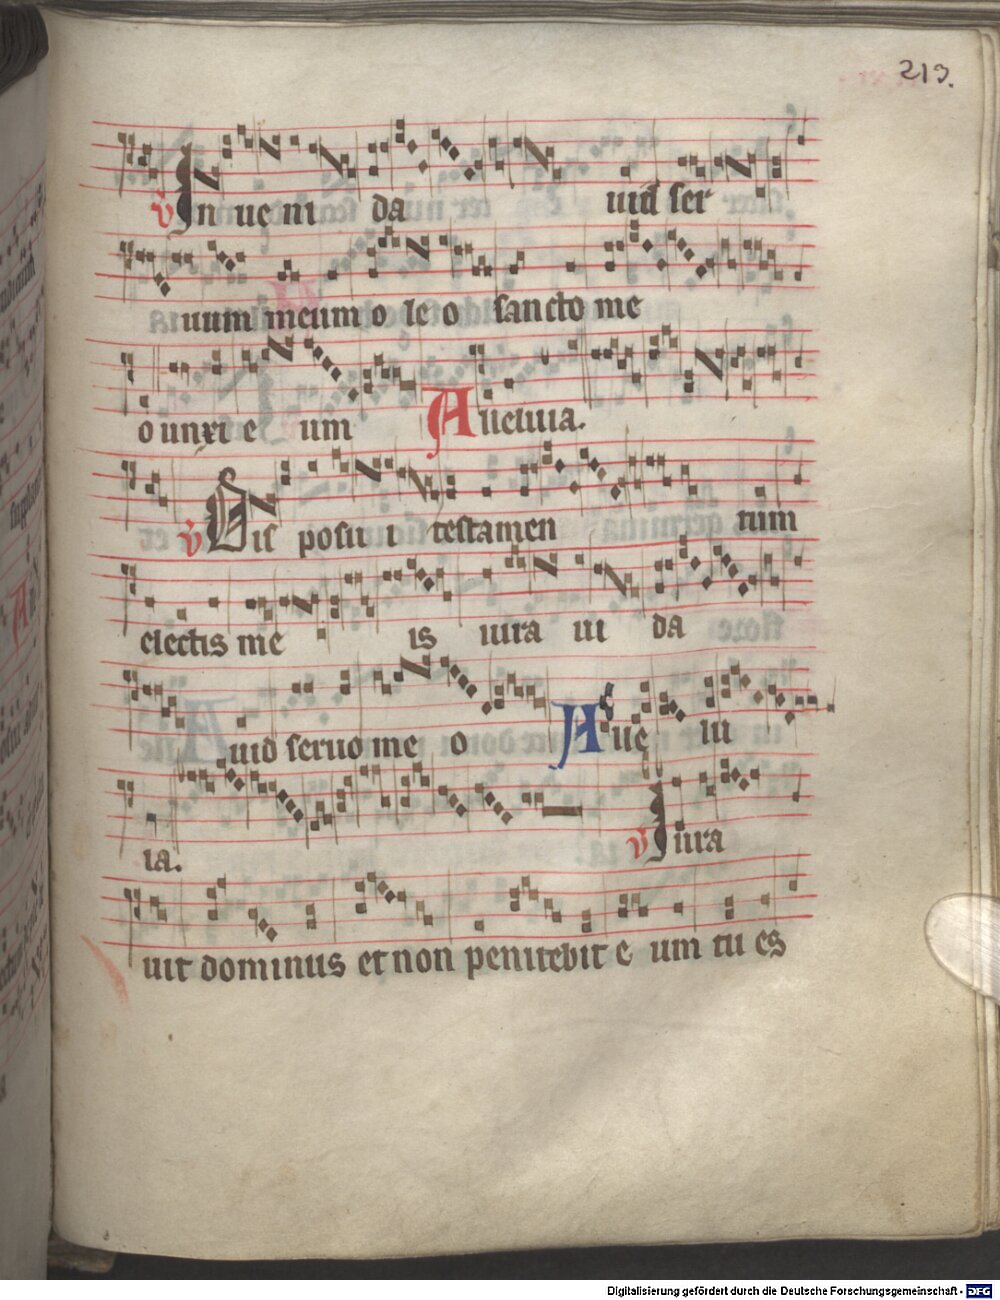 213.
v In ue ni da uid ser
uum meum o le o sancto me
o unxi e um Alleluia.
v Dis posu i testamen tum
electis me is iura ui da
uid seruo me o Alle lu
ia. v Iura
uit dominus et non penitebit e um tu es
Digitalisierung gefördert durch die Deutsche Forschungsgemeinschaft - DFG